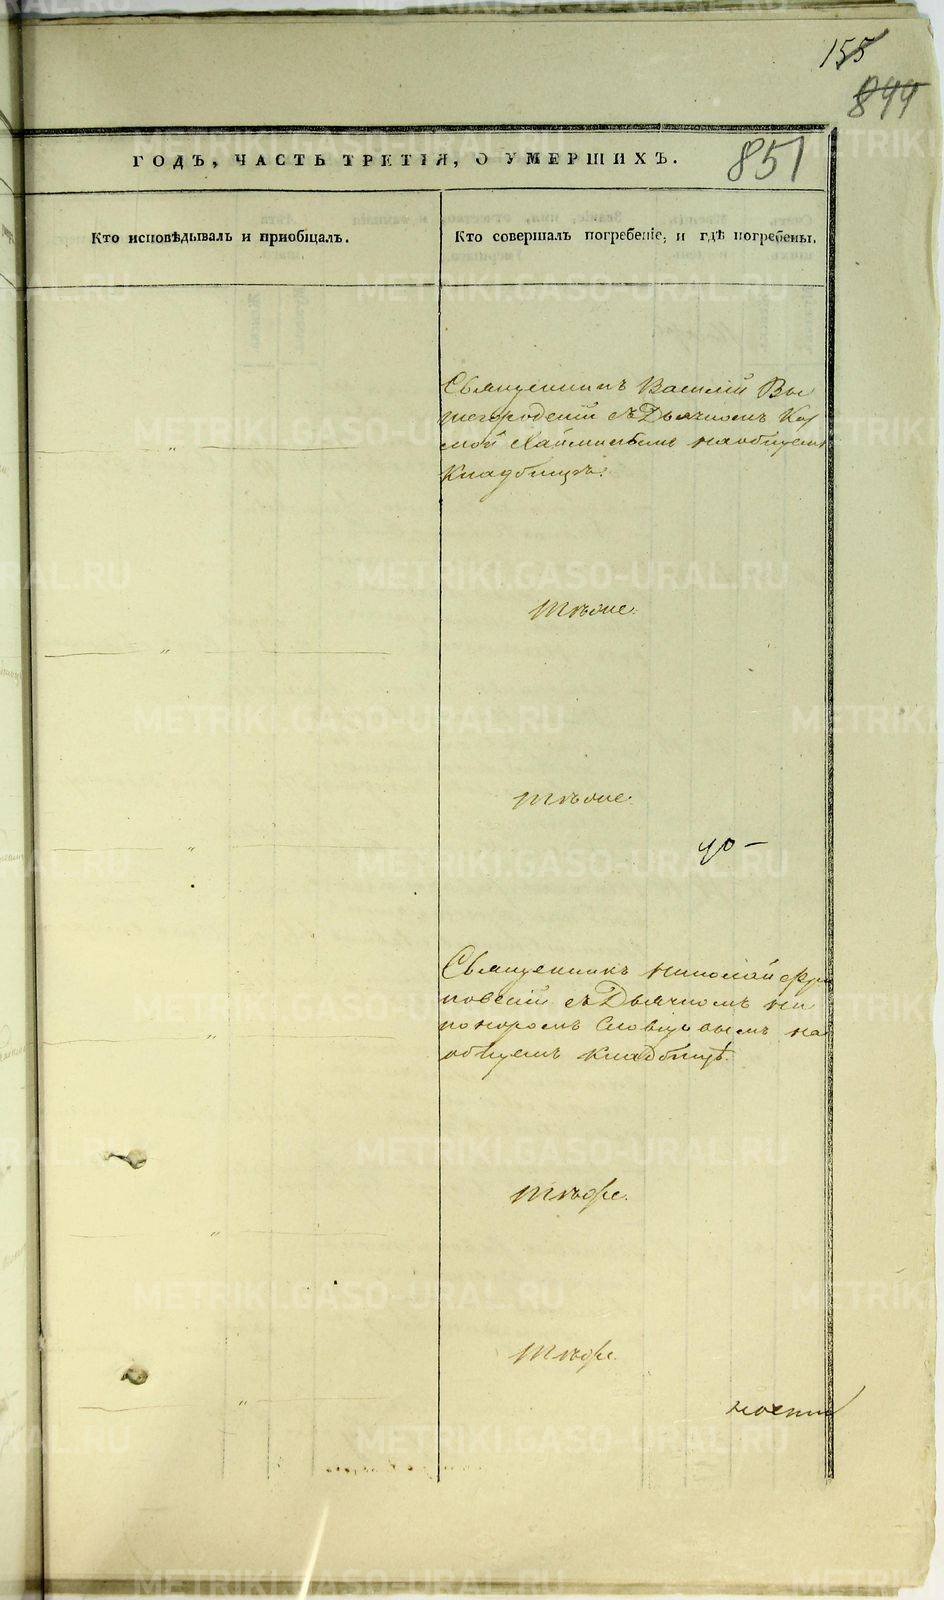 155
844
851
ГОДЪ, ЧАСТЬ ТРЕТІЯ, О УМЕРШИХЪ.
Кто исповѣдывалъ и приобщалъ.
Кто совершалъ погребеніе, и гдѣ погребены.
Священникъ Василій Вы
шегородскій съ Дьячкомъ
на общемъ
Кладбищѣ.
Тѣже.
Тѣже.
Священникъ Николай
съ Дьячкомъ Ни
каноромъ Словцовымъ на
общемъ кладбищѣ.
Тѣже.
Тѣже.
METRIKI.GASO-URAL.RU